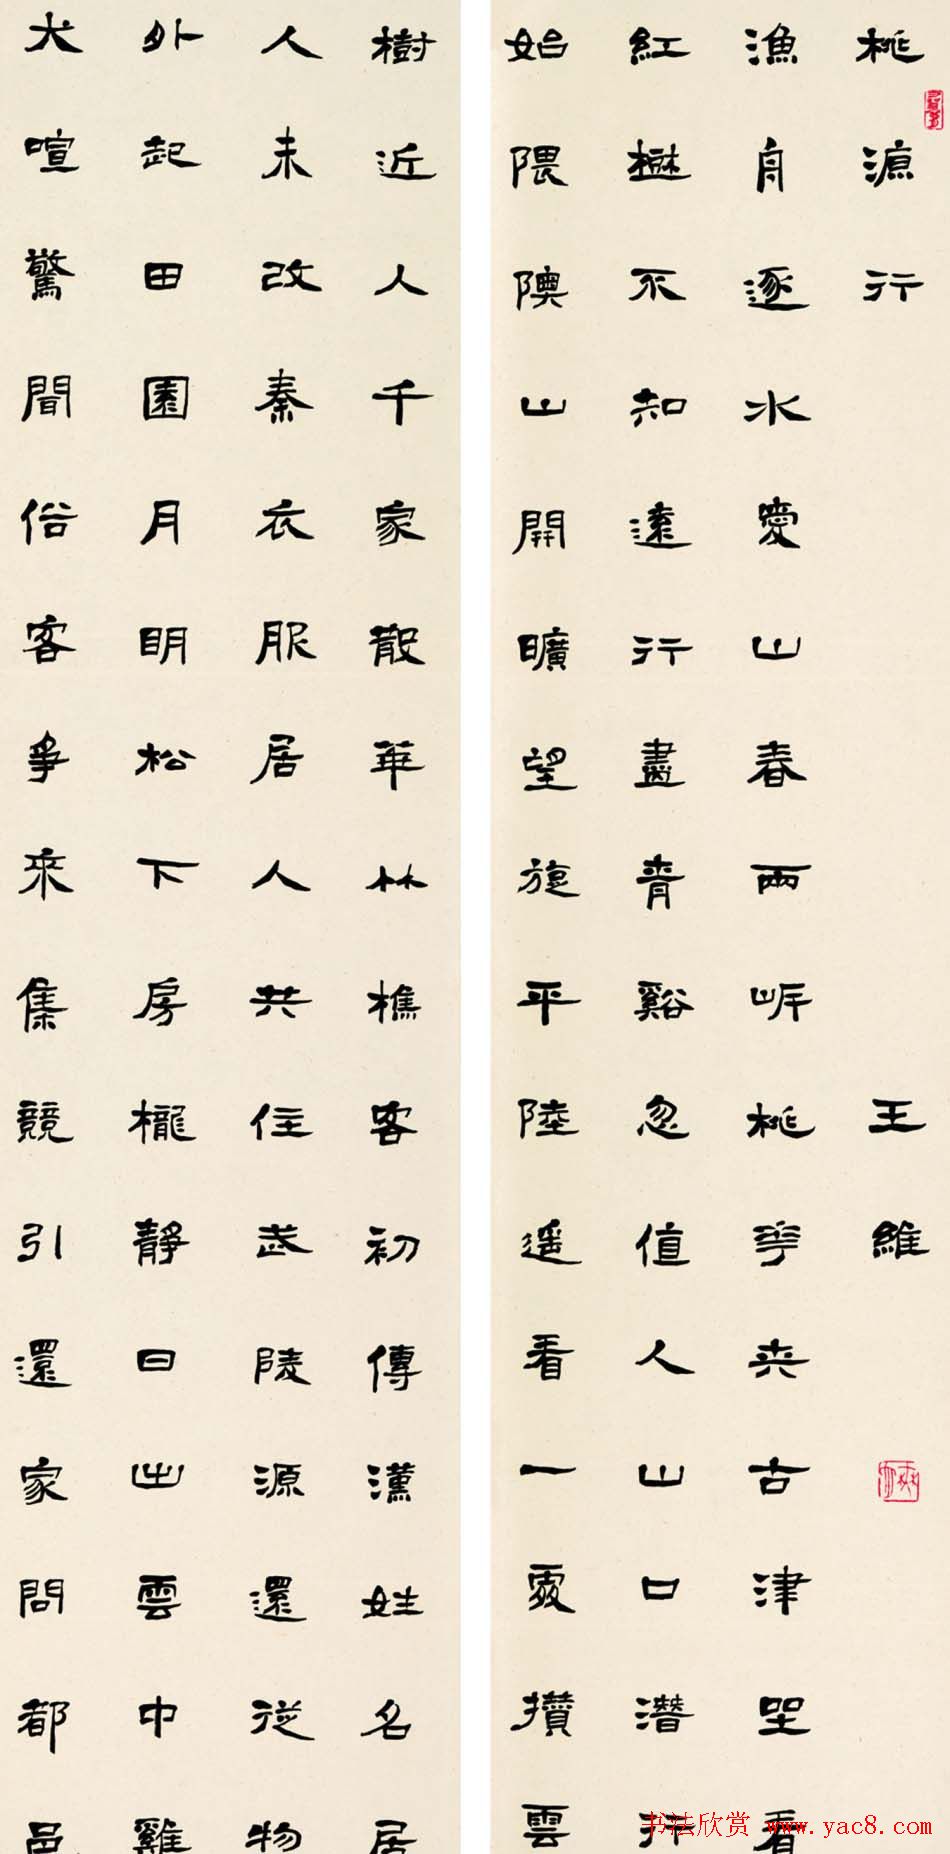 桃源行 王維
漁舟逐水愛山春兩岸桃華夾古津坐看
紅樹不知遠行盡青谿忽值人山口潛行
始隈隩山開曠望旋平陸遥看一處攢雲
樹近入千家散華竹樵客初傳漢姓名居
人未改秦衣服居人共住武陵源還從物
外起田園月明松下房櫳靜日出雲中雞
犬喧驚聞俗客爭來集競引還家問都邑
书法欣赏 www.yac8.com